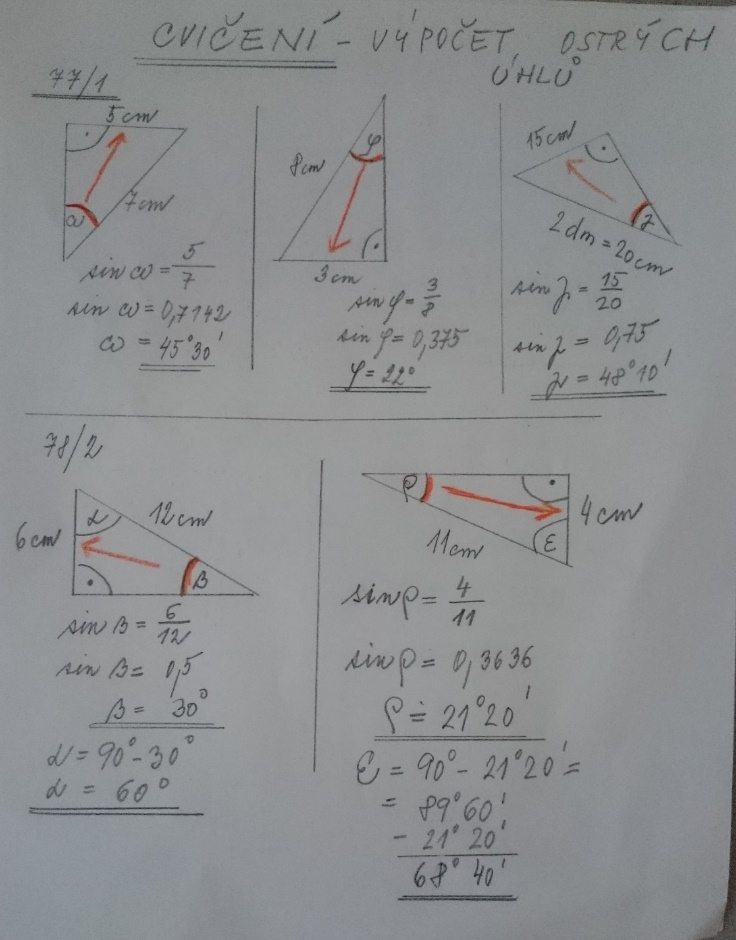 CVIČENÍ - VÝPOČET OSTRÝCH
ÚHLŮ
77/1
5cm
ω
7cm
sin ω = 5/7
sin ω = 0,7142
ω = 45°30'
8cm
φ
3cm
sin φ = 3/8
sin φ = 0,375
φ = 22°
15cm
γ
2dm = 20cm
sin γ = 15/20
sin γ = 0,75
γ = 48°10'
78/2
6cm
α
12cm
β
sin β = 6/12
sin β = 0,5
β = 30°
α = 90° - 30°
α = 60°
ρ
4cm
11cm
ε
sin ρ = 4/11
sin ρ = 0,3636
ρ ≐ 21°20'
ε = 90° - 21°20' =
= 89°60'
- 21°20'
68°40'